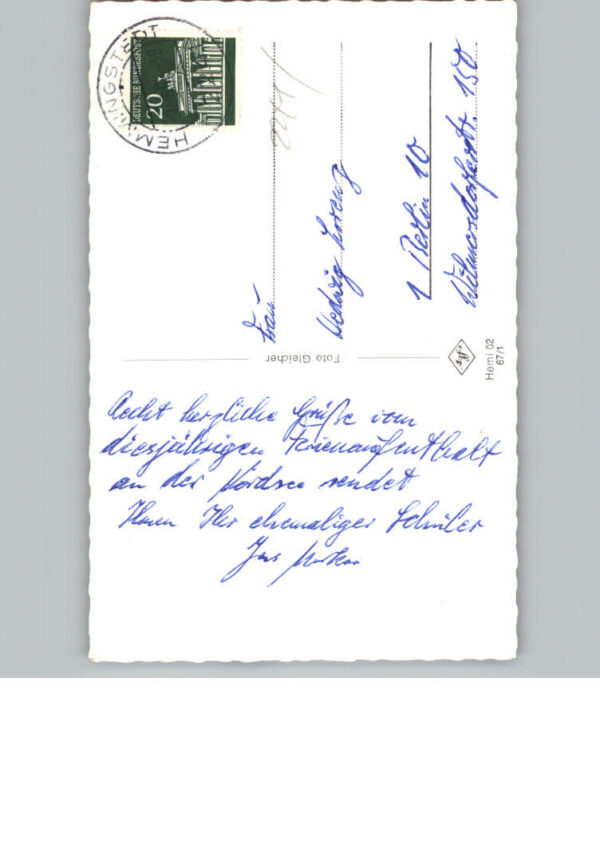 Recht herzliche Grüße vom
diesjährigen Ferienaufenthalt
an der Nordsee sendet
Ihnen Ihr ehemaliger Schüler
Frau
Hedwig Lorenz
1 Berlin 10
Wilmersdorferstr. 150
HEMMINGSTEDT
DEUTSCHE BUNDESPOST
20
Foto Gleicher
Heml 02
67/1